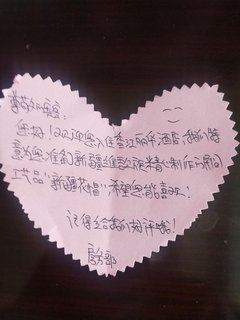 尊敬的贵宾：
您好！欢迎您入住香江丽华酒店，我们特
意为您准备新疆维族精心制作的手
工艺品“新疆花帽”，希望您能喜欢！
记得给我们好评哦！
房务部